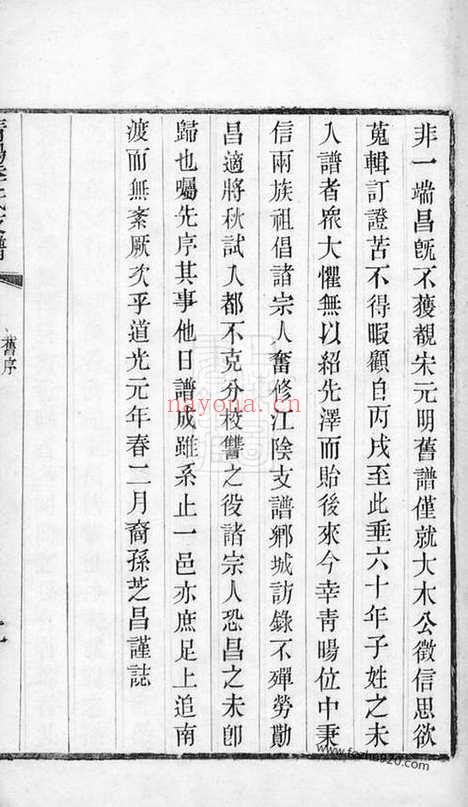 非一端昌旣不獲覩宋元明舊譜僅就大木公徵信思欲
蒐輯訂證苦不得暇顧自丙戌至此垂六十年子姓之未
入譜者衆大懼無以紹先澤而貽後來今幸靑暘位中秉
信兩族祖倡諸宗人奮修江陰支譜鄉城訪錄不殫勞勩
昌適將秋試入都不克分校讐之役諸宗人恐昌之未卽
歸也囑先序其事他日譜成雖系止一邑亦庶足上追南
渡而無紊厥次乎道光元年春二月裔孫芝昌謹誌
舊序
nayona.cn
www.fozhu920.com